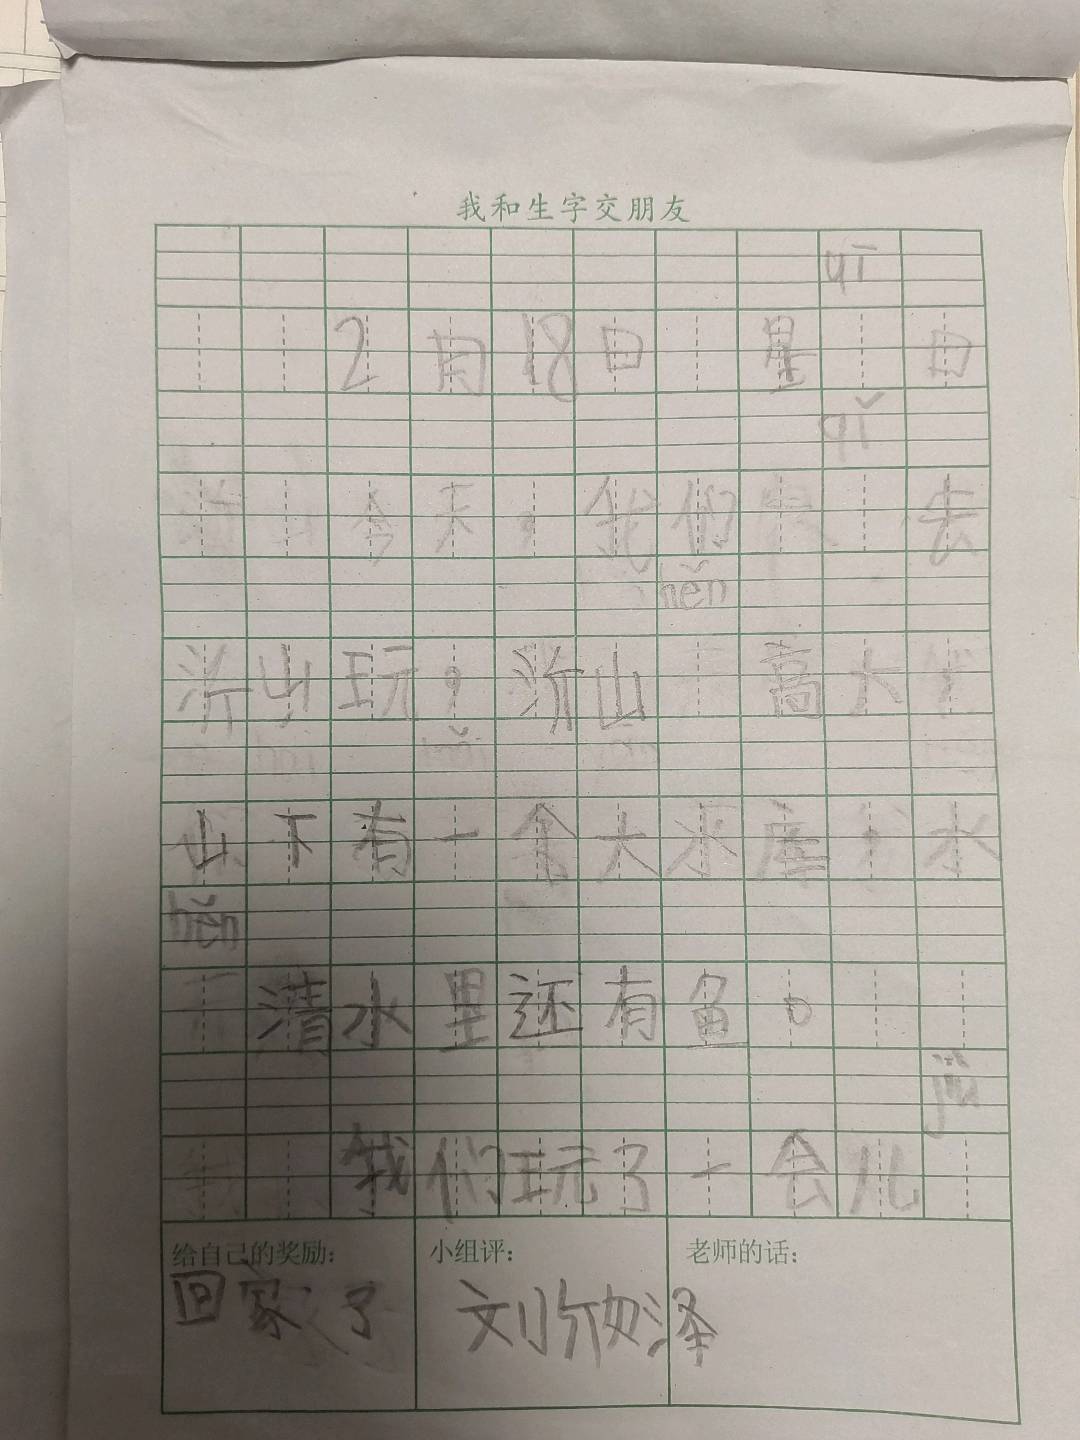 我和生字交朋友
qī
2月18日 星 日
qǐ
今天，我们 去
hěn
沂山玩，沂山 高大
山下有一个大水库，水
hěn
清水里还有鱼。
jiù
我们玩了一会儿
给自己的奖励： 小组评： 老师的话：
回家了 刘欣泽